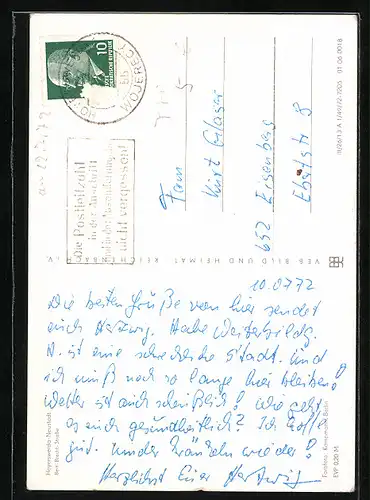 10
DEUTSCHE DEMOKRATISCHE REPUBLIK
HOYERSWERDA
WOJERECY
Die Postleitzahl
in der Anschrift
und in der Absenderangabe
nicht vergessen!
Fam
Kurt Glaser
652 Eisenberg
Ebertstr 8
III/26/13 A 1/491/72 01 06 0018
VEB BILD UND HEIMAT REICHENBACH i. V.
10.07.72
Die besten Grüße von hier sendet
euch Hartwig. Habe Weiterbildg.
H. ist eine schreckliche Stadt. Und
ich muß noch so lange hier bleiben!
Wetter ist auch scheußlich! Wie geht
es euch gesundheitlich? Ich hoffe
gut.
wieder!
Herzlichst Euer Hartwig
Hoyerswerda-Neustadt
Bert-Brecht-Straße
Berlin
EVP 0,20 M